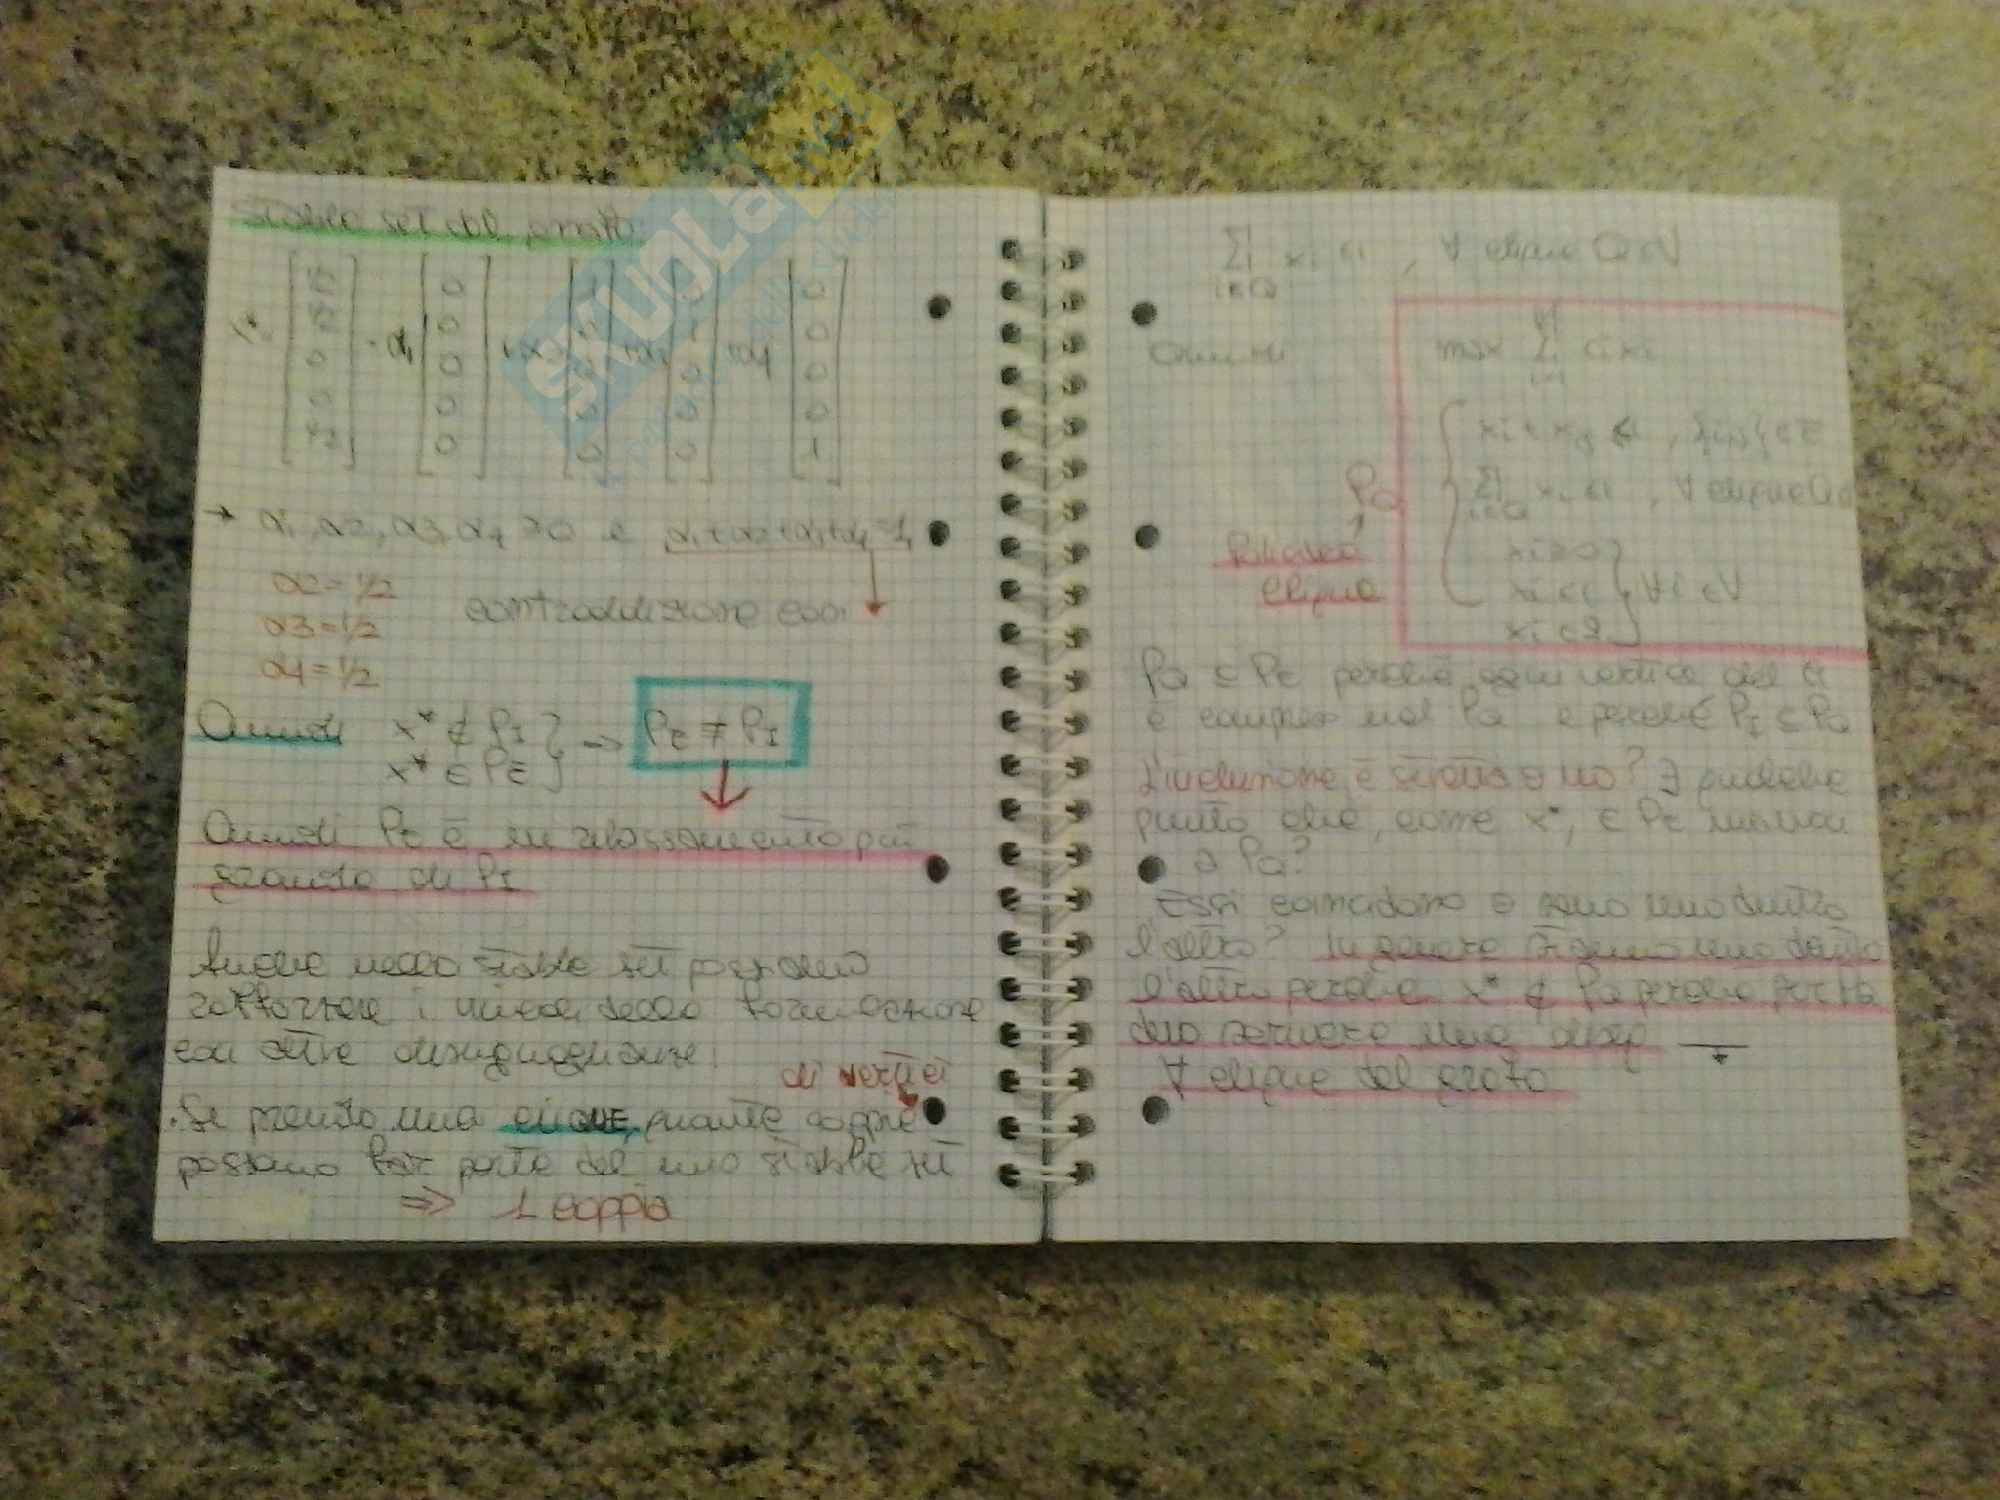 stable set del grafo
α1, α2, α3, α4 ≥ 0 e α1+α2+α3+α4=1
α2=1/2
α3=1/2
α4=1/2
contraddizione con
Quindi x* ∉ PI
x* ∈ PE
⇒ PE ≠ PI
Quindi PE è un rilassamento più
grande di PI
Anche nello stable set possiamo
rafforzare i vincoli della formulazione
con altre disuguaglianze:
di vertici
• Se prendo una CLIQUE, quante coppie
possono far parte del uno stable set
⇒ 1 coppia
SKUOLA.net
Σ xi ≤1 , ∀ clique Q⊆V
i∈Q
Quindi
max Σ ci xi
xi + xj ≤1 , {i,j}∈E
Σ xi ≤1 , ∀ clique Q
i∈Q
PQ
xi≥0
xi≤1 ∀i ∈V
clique
PQ ⊆ PE perché ogni vertice del
è compreso nel PQ e perché PI ⊆ PQ
L'inclusione è stretta o no? ∃ qualche
punto che, come x*, ∈ PE ma non
a PQ?
Essi coincidono o sono uno dentro
l'altro? In genere stanno uno dentro
l'altro perché x* ∉ PQ perché
devo scrivere una diseq
∀ clique del grafo